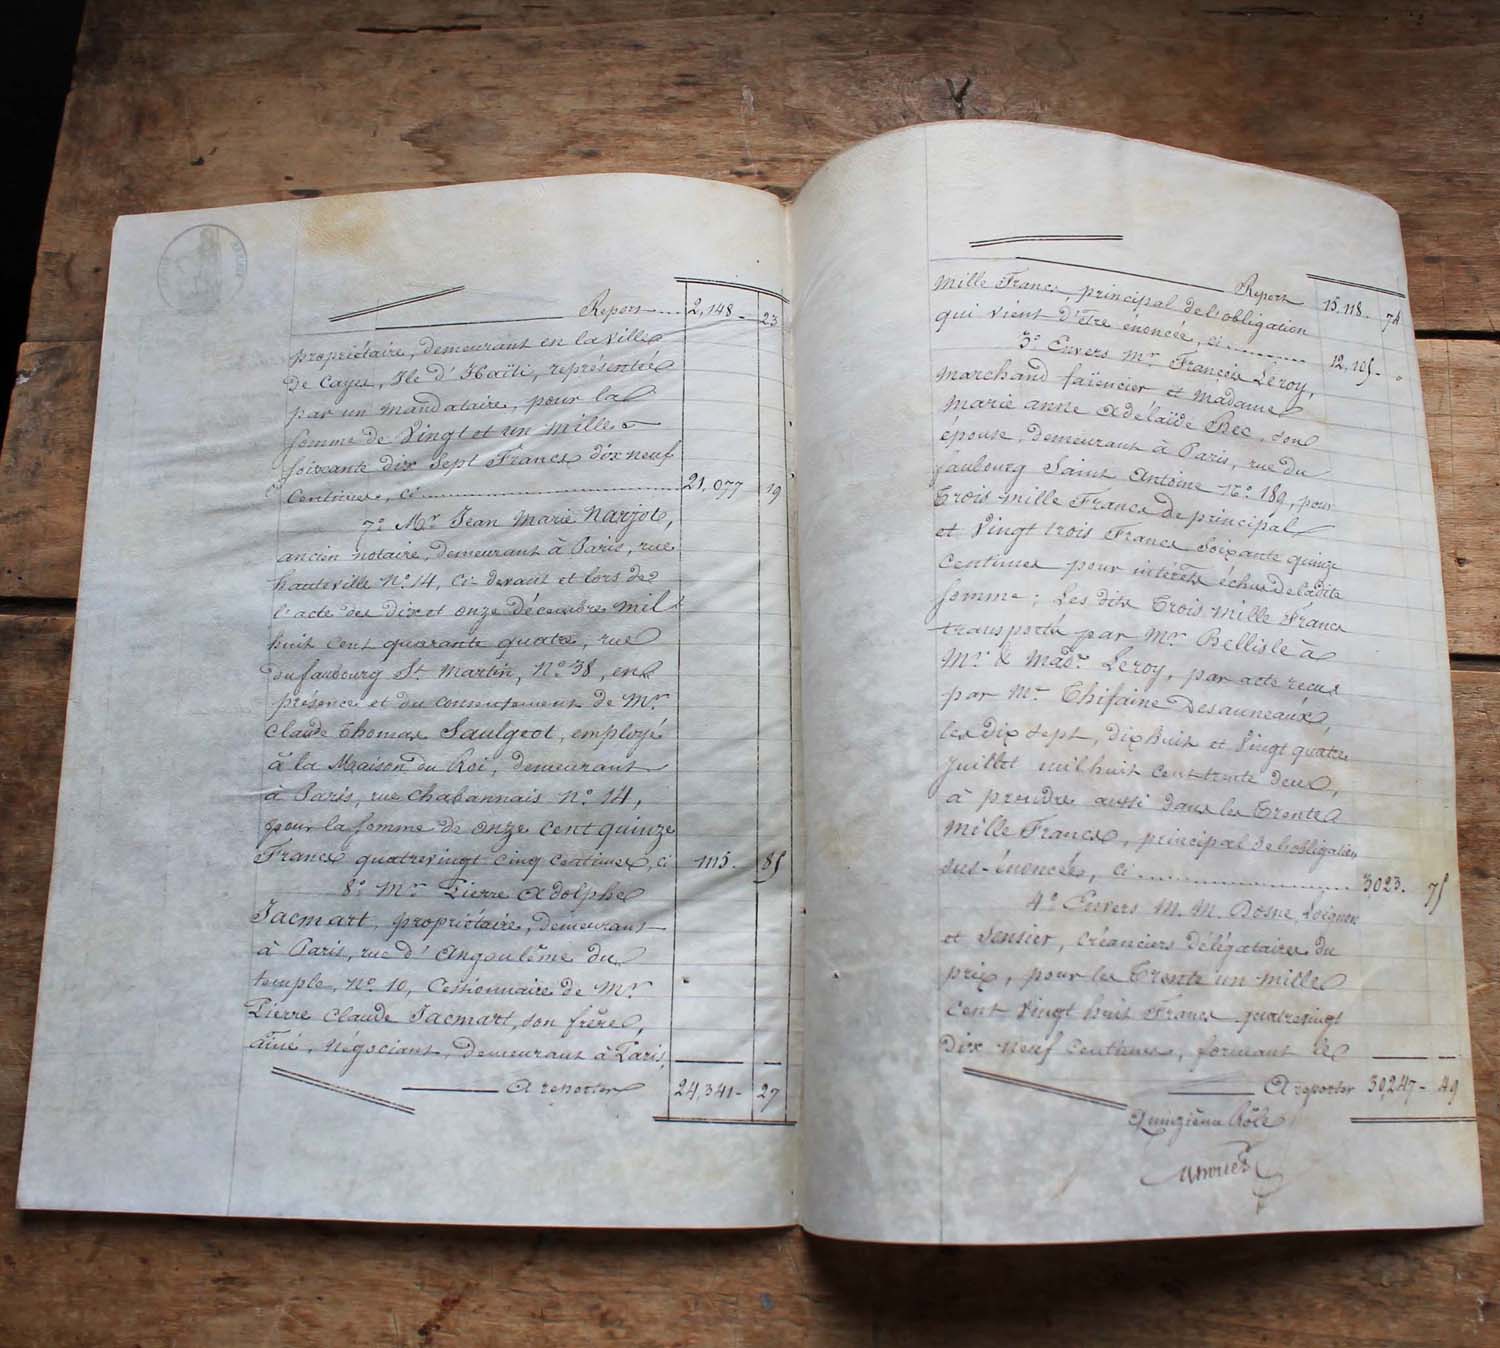 Report .... 2,148 - 23
propriétaire, demeurant en la ville
de Cayes, Ile d'Haïti, représenté
par un mandataire, pour la
somme de Vingt et un mille
soixante dix sept Francs dix neuf
Centimes, ci .... 21,077 19
7º Mr Jean Marie Narjot,
ancien notaire, demeurant à Paris, rue
hauteville nº 14, ci-devant et lors de
l'acte des dix et onze décembre mil
huit cent quarante quatre, rue
du faubourg St Martin, Nº 38, en
présence et du consentement de Mr
Claude Thomas Saulgeot, employé
à la Maison du Roi, demeurant
à Paris, rue Chabannais Nº 14,
pour la somme de onze cent quinze
Francs quatrevingt cinq centimes, ci 1115. 85
8º Mr Pierre Adolphe
Jacmart, propriétaire, demeurant
à Paris, rue d'Angoulême du
temple, Nº 10, Cessionnaire de Mr
Pierre Claude Jacmart, son frère,
aîné, négociant, demeurant à Paris,
A reporter 24,341 - 27
Report 15,118. 74
Mille Francs, principal de l'obligation
qui vient d'être énoncée, ci .... 12,105 - "
3º Envers Mr François Leroy,
marchand faïencier et madame
Marie anne adélaïde Bec, son
épouse, demeurant à Paris, rue du
faubourg Saint Antoine Nº 189, pour
Trois mille Francs de principal
et Vingt trois Francs Soixante quinze
Centimes pour intérêts échus de ladite
somme; Les dits Trois mille Francs
transportés par Mr Bellisle à
Mr & Made Leroy, par acte reçu
par Mr Thifaine Desauneaux,
les dix sept, dix huit et Vingt quatre
juillet mil huit cent trente deux,
à prendre aussi dans les Trente
Mille Francs, principal de l'obligation
sus-énoncée, ci .... 3023. 75
4º Envers M.M. Dosne, Loignon
et Sensier, créanciers délégataires du
prix, pour les Trente un mille
Cent Vingt huit Francs quatrevingt
dix neuf Centimes, formant le
A reporter 30,247 - 49
Quinzième Rôle